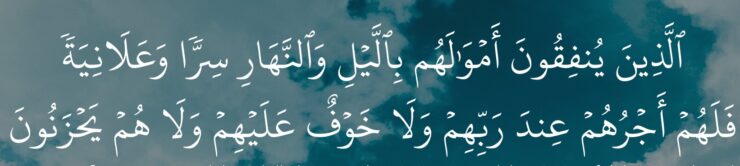 ٱلَّذِينَ يُنفِقُونَ أَمۡوَٰلَهُم بِٱلَّيۡلِ وَٱلنَّهَارِ سِرّٗا وَعَلَانِيَةٗ
فَلَهُمۡ أَجۡرُهُمۡ عِندَ رَبِّهِمۡ وَلَا خَوۡفٌ عَلَيۡهِمۡ وَلَا هُمۡ يَحۡزَنُونَ